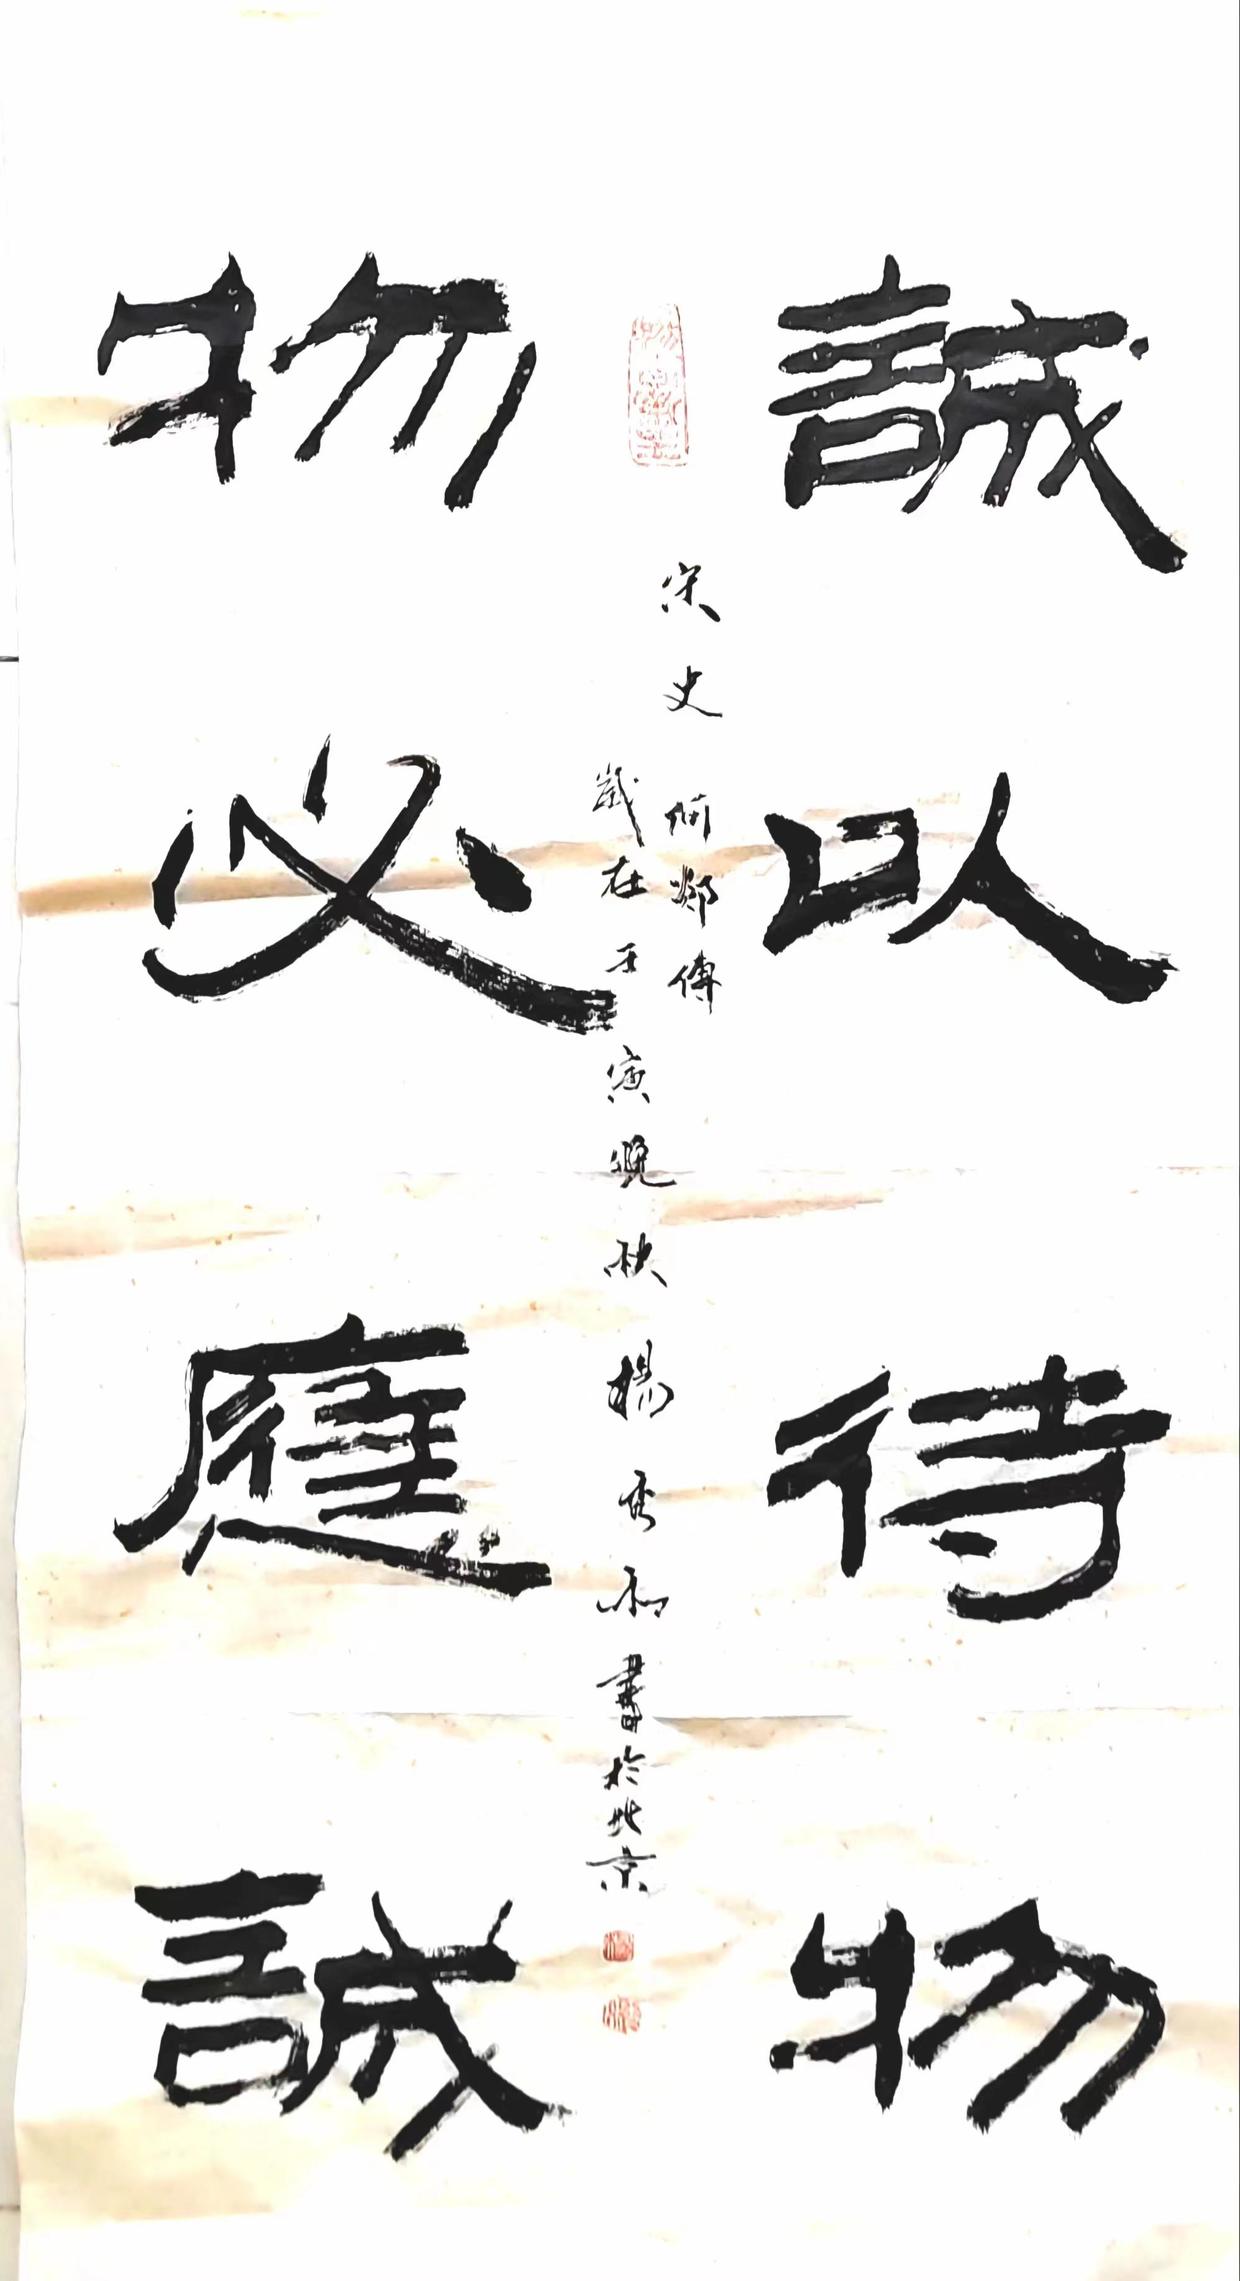 誠以待物
物必應誠
宋史何郯傳
歲在壬寅晚秋楊秀和書於北京